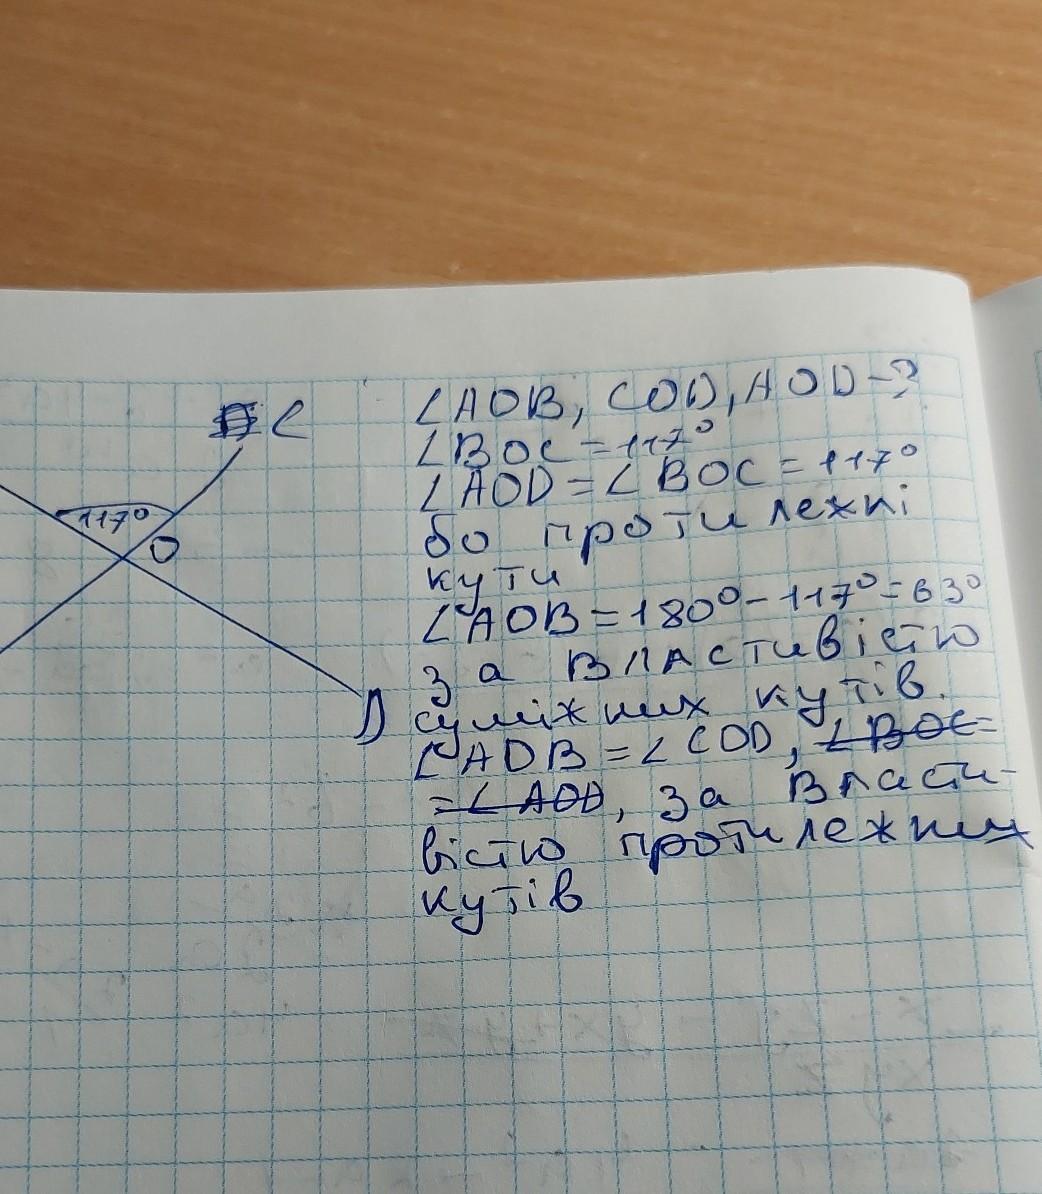 C
117°
O
D
∠AOB, COD, AOD-?
∠BOC=117°
∠AOD=∠BOC=117°
бо протилежні
кути
∠AOB=180°-117°=63°
за властивістю
суміжних кутів.
∠AOB=∠COD, ∠BOC=
=∠AOD, за власти-
вістю протилежних
кутів